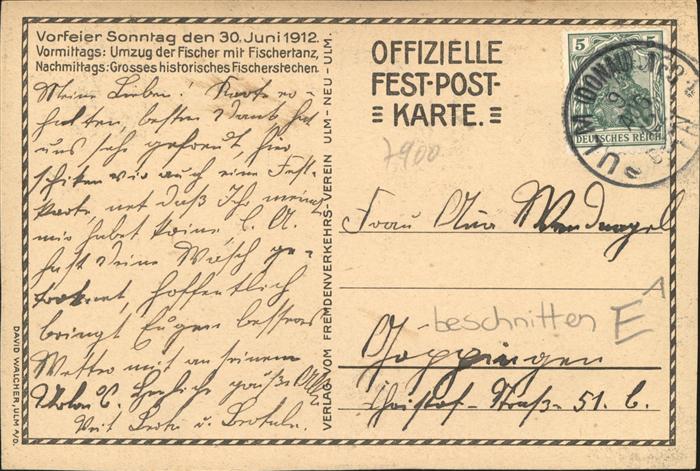 Vorfeier Sonntag den 30. Juni 1912.
Vormittags: Umzug der Fischer mit Fischertanz,
Nachmittags: Grosses historisches Fischerstechen.
Meine Lieben! Karte er-
halten, besten Dank, hat
uns sehr gefreut, hier
schiken wir auch eine Fest-
karte, net daß Ihr meinet
mir habet keine. L. A.
hast Deine Wäsch ge-
troknet, hoffentlich
bringt Eugen besseres
Wetter mit an seinem
Urlaub. Herzliche Grüße
Veit u.
DAVID WALCHER, ULM a/D.
VERLAG VOM FREMDENVERKEHRS-VEREIN ULM-NEU-ULM.
OFFIZIELLE
FEST-POST-
KARTE.
5 5
DEUTSCHES REICH
ULM (DONAU)
7900
Frau
beschnitten E A
Göppingen
Christof-Straße 51. b.